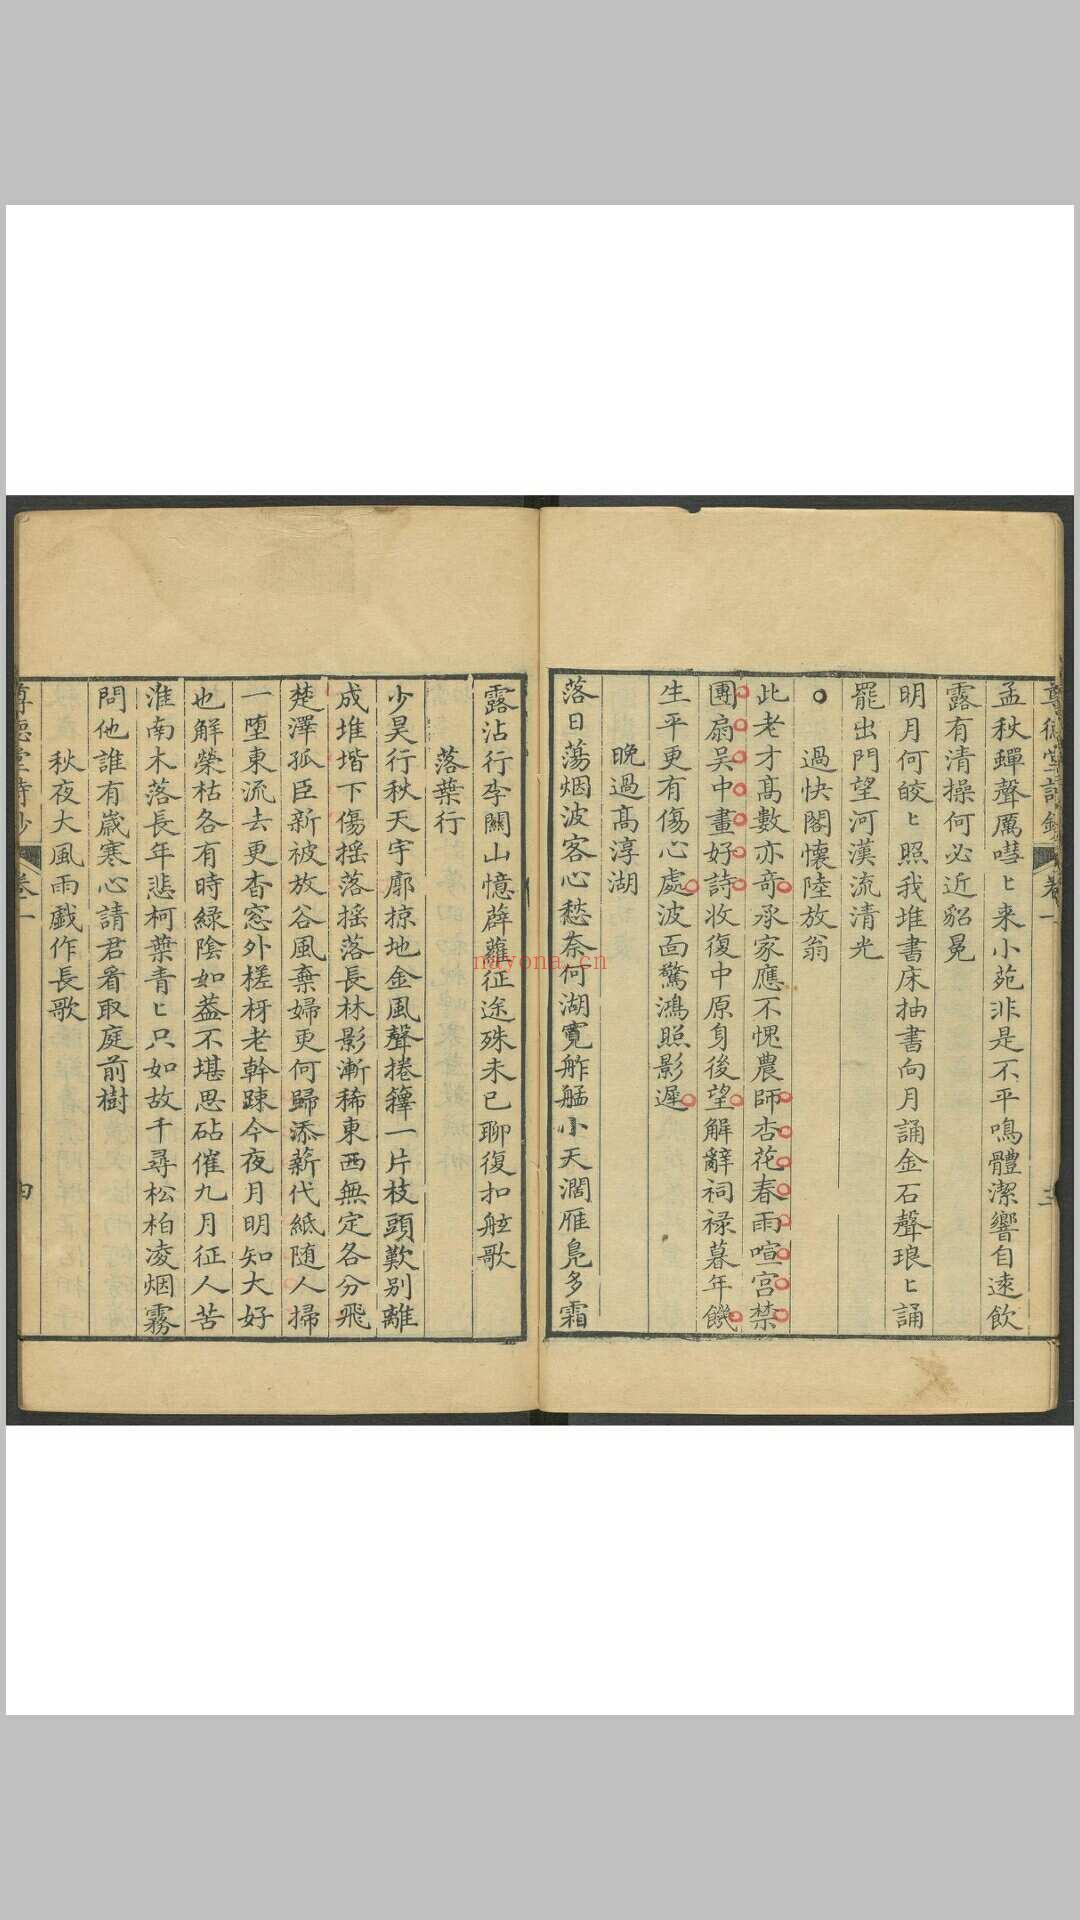 尊德堂詩鈔 卷一 三
孟秋蟬聲厲嘒〻来小苑非是不平鳴體潔響自遠飲
露有清操何必近貂冕
明月何皎〻照我堆書床抽書向月誦金石聲琅〻誦
罷出門望河漢流清光
過快閣懷陸放翁
此老才髙數亦奇承家應不愧農師杏花春雨喧宫禁
團扇吴中畫好詩收復中原身後望解辭祠禄暮年饑
生平更有傷心處波面驚鴻照影遲
晚過髙淳湖
落日蕩烟波客心愁奈何湖寛舴艋小天濶雁凫多霜
露沾行李關山憶薜蘿征途殊未已聊復扣舷歌
落葉行
少昊行秋天宇廓掠地金風聲捲籜一片枝頭歎别離
成堆堦下傷摇落摇落長林影漸稀東西無定各分飛
楚澤孤臣新被放谷風棄婦更何歸添薪代紙随人掃
一墮東流去更杳窓外槎枒老幹踈今夜月明知大好
也解榮枯各有時緑陰如葢不堪思砧催九月征人苦
淮南木落長年悲柯葉青〻只如故千尋松柏凌烟霧
問他誰有嵗寒心請君看取庭前樹
秋夜大風雨戲作長歌
尊德堂詩鈔 卷一 四
nayona.cn